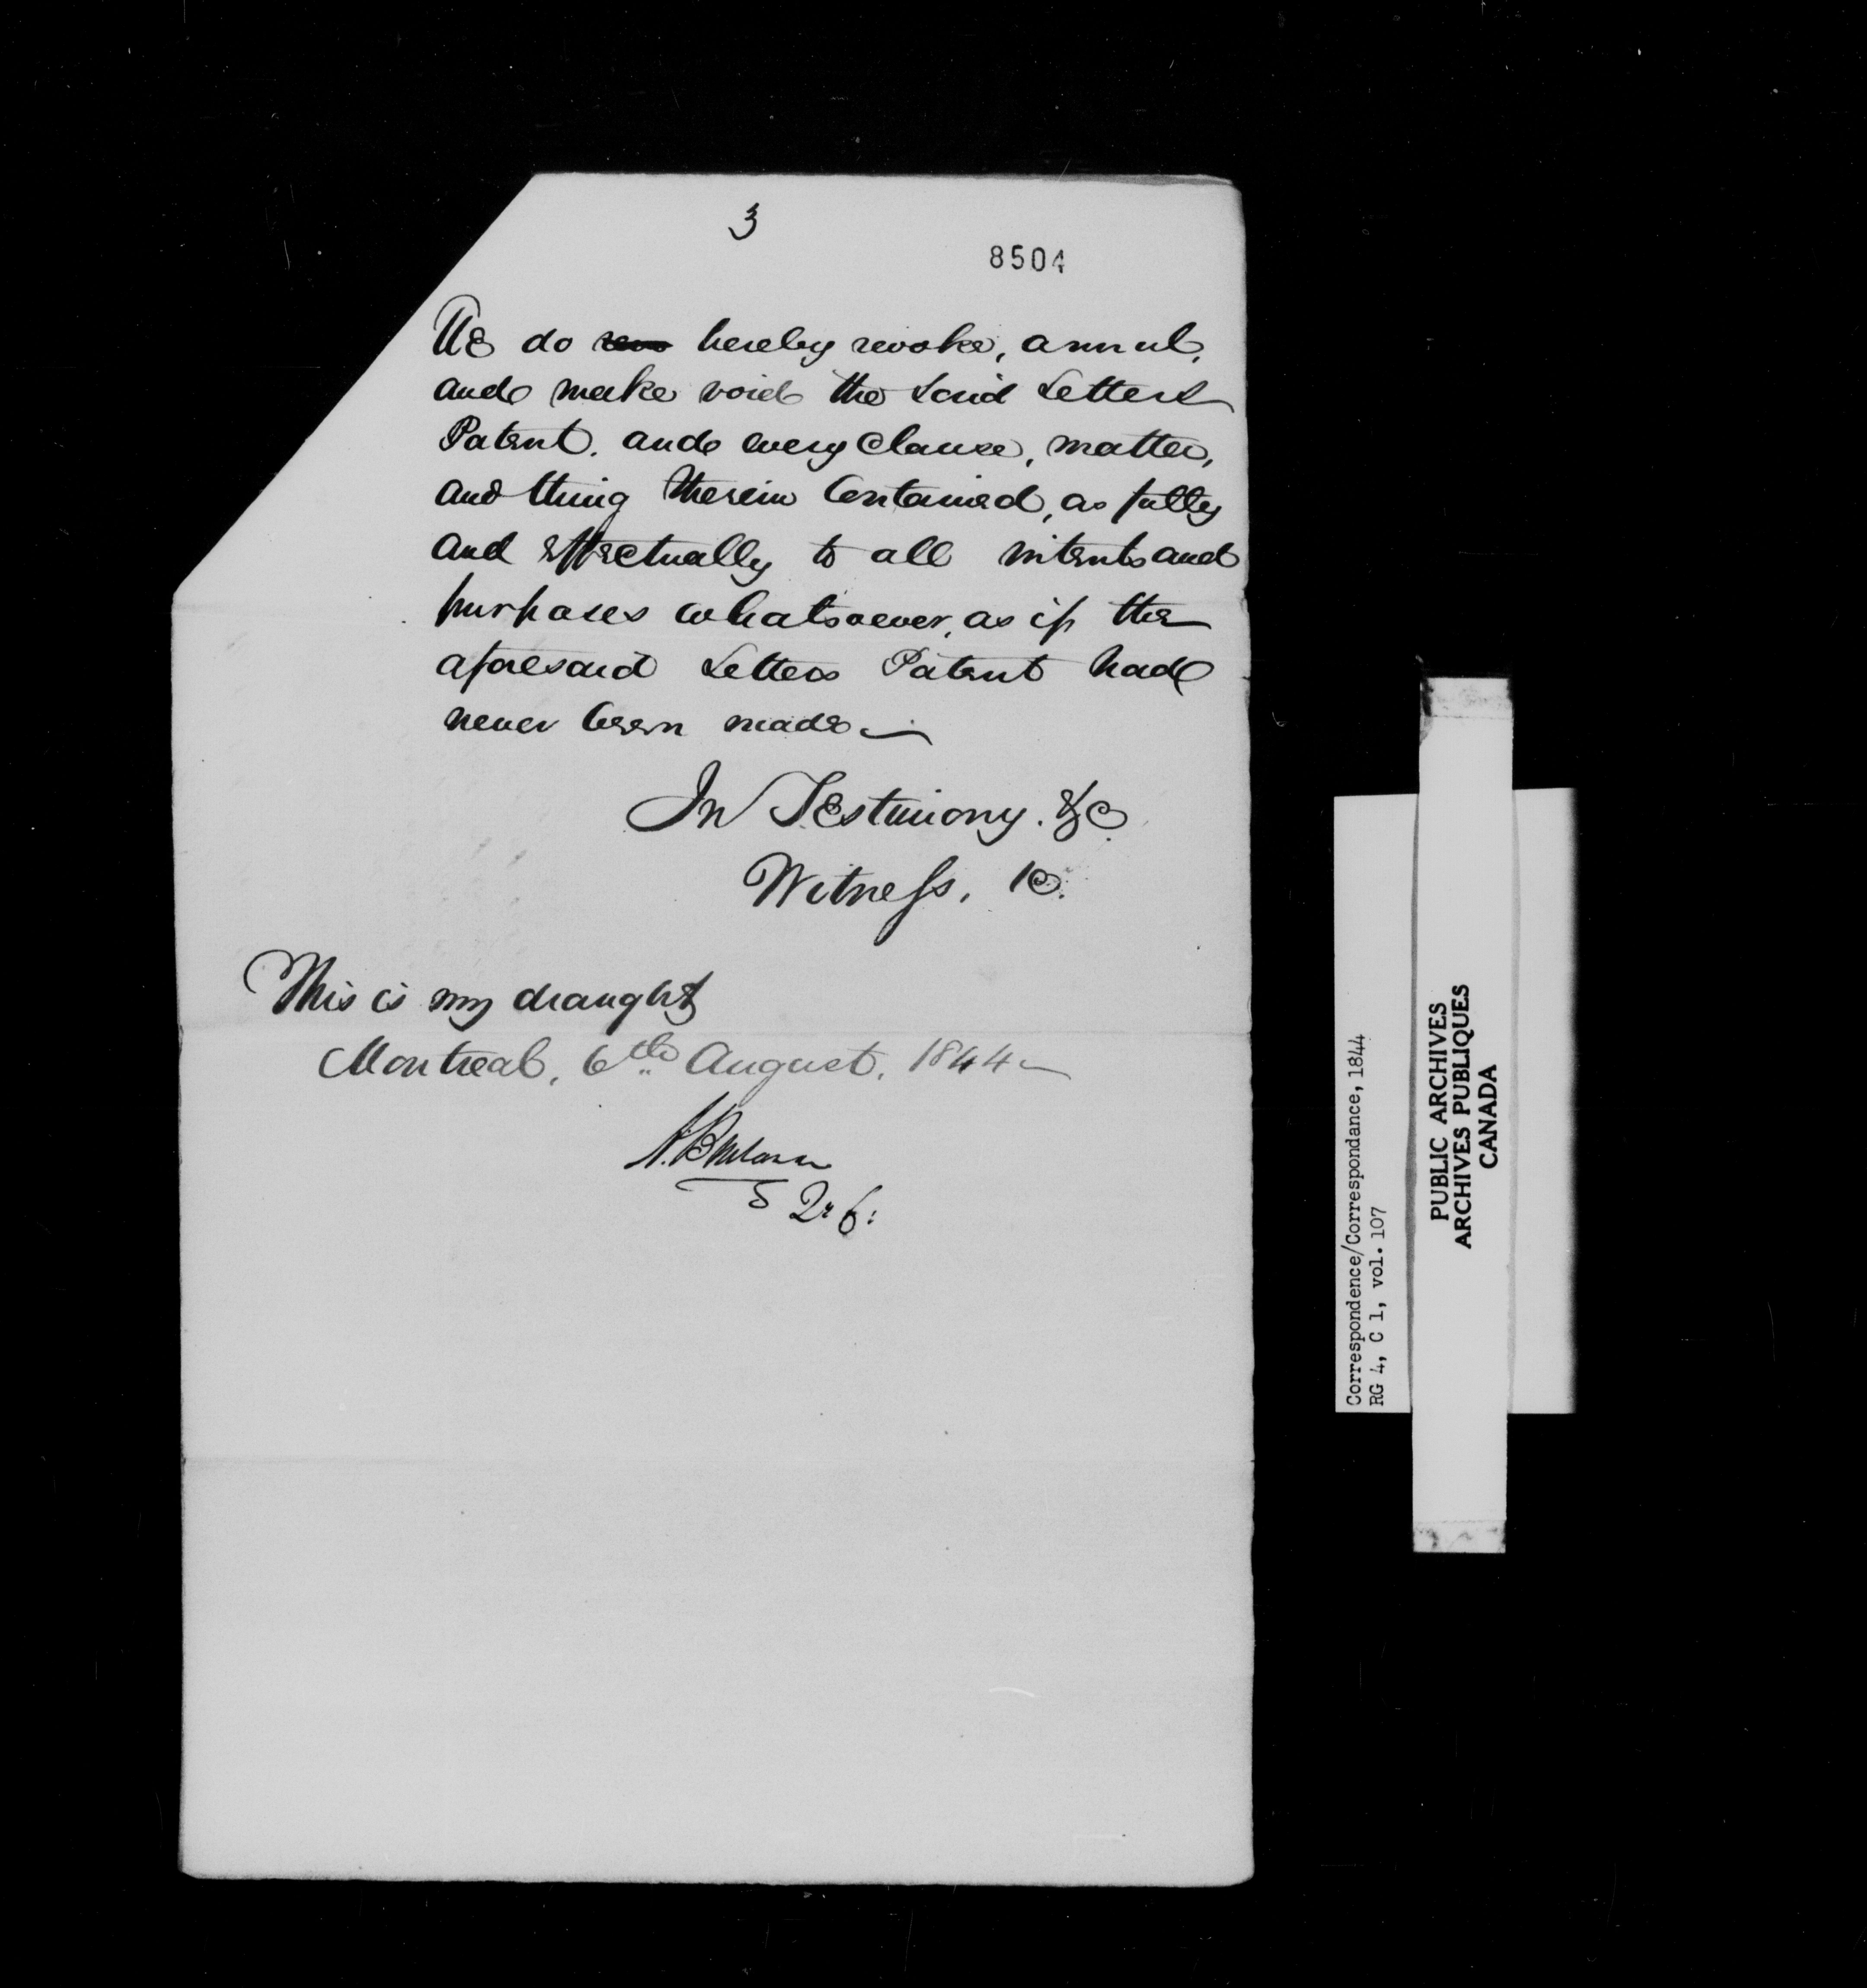 3
8504
We do hereby revoke, annul,
and make void the said Letters
Patent, and every Clause, matter,
and thing therein Contained, as fully
and effectually to all intents and
purposes whatsoever, as if the
aforesaid Letters Patent had
never been made
In Testimony. &c.
Witness, &c.
This is my draught
Montreal, 6th August, 1844
Correspondence/Correspondance, 1844
RG 4, C 1, vol. 107
PUBLIC ARCHIVES
ARCHIVES PUBLIQUES
CANADA